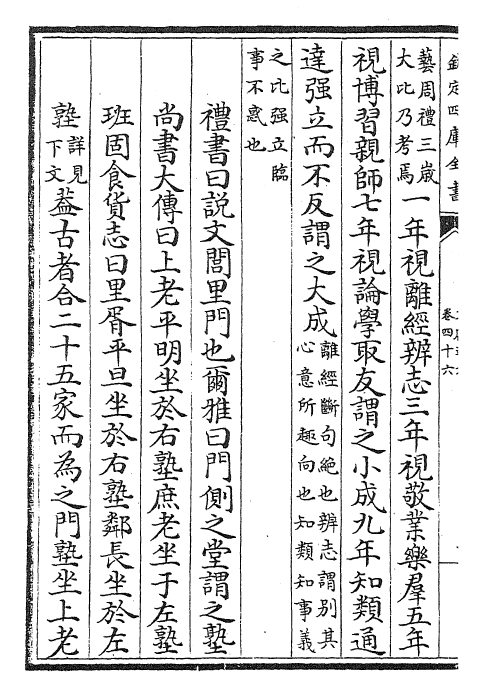 欽定四庫全書
卷四十六
藝周禮三歳
大比乃考焉
一年視離經辨志三年視敬業樂羣五年
視博習親師七年視論學取友謂之小成九年知類通
達强立而不反謂之大成
離經斷句絶也辨志謂别其
心意所趣向也知類知事義
之比强立臨
事不惑也
禮書曰説文閭里門也爾雅曰門側之堂謂之塾
尚書大傳曰上老平明坐於右塾庶老坐于左塾
班固食貨志曰里胥平旦坐於右塾鄰長坐於左
塾
詳見
下文
葢古者合二十五家而為之門塾坐上老